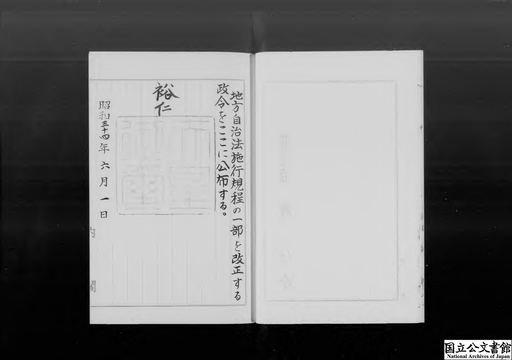 地方自治法施行規程の一部を改正する
政令をここに公布する。
裕仁
昭和三十四年六月一日
国立公文書館
National Archives of Japan